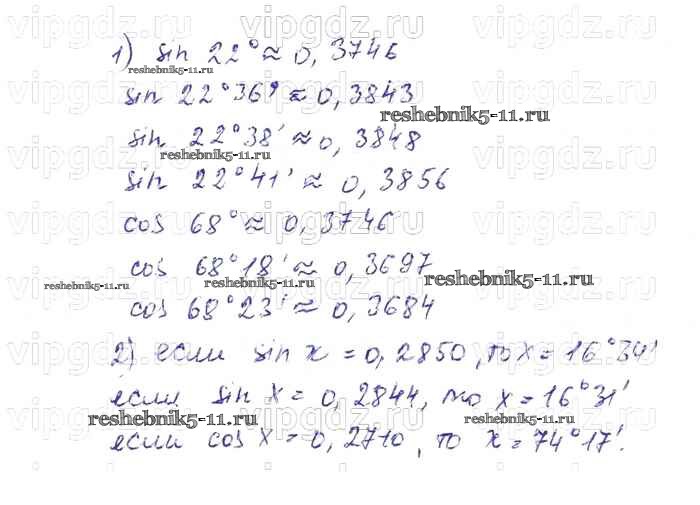 1) sin 22° ≈ 0,3746
sin 22°36' ≈ 0,3843
sin 22°38' ≈ 0,3848
sin 22°41' ≈ 0,3856
cos 68° ≈ 0,3746
cos 68°18' ≈ 0,3697
cos 68°23' ≈ 0,3684
2) если sin x = 0,2850, то x = 16°34'
если sin x = 0,2844, то x = 16°31'
если cos x = 0,2710, то x = 74°17'.
reshebnik5-11.ru
reshebnik5-11.ru
reshebnik5-11.ru
reshebnik5-11.ru
reshebnik5-11.ru
reshebnik5-11.ru
reshebnik5-11.ru
vipgdz.ru vipgdz.ru vipgdz.ru
vipgdz.ru vipgdz.ru vipgdz.ru
vipgdz.ru vipgdz.ru vipgdz.ru
vipgdz.ru vipgdz.ru vipgdz.ru
vipgdz.ru vipgdz.ru vipgdz.ru
vipgdz.ru vipgdz.ru vipgdz.ru
vipgdz.ru vipgdz.ru vipgdz.ru